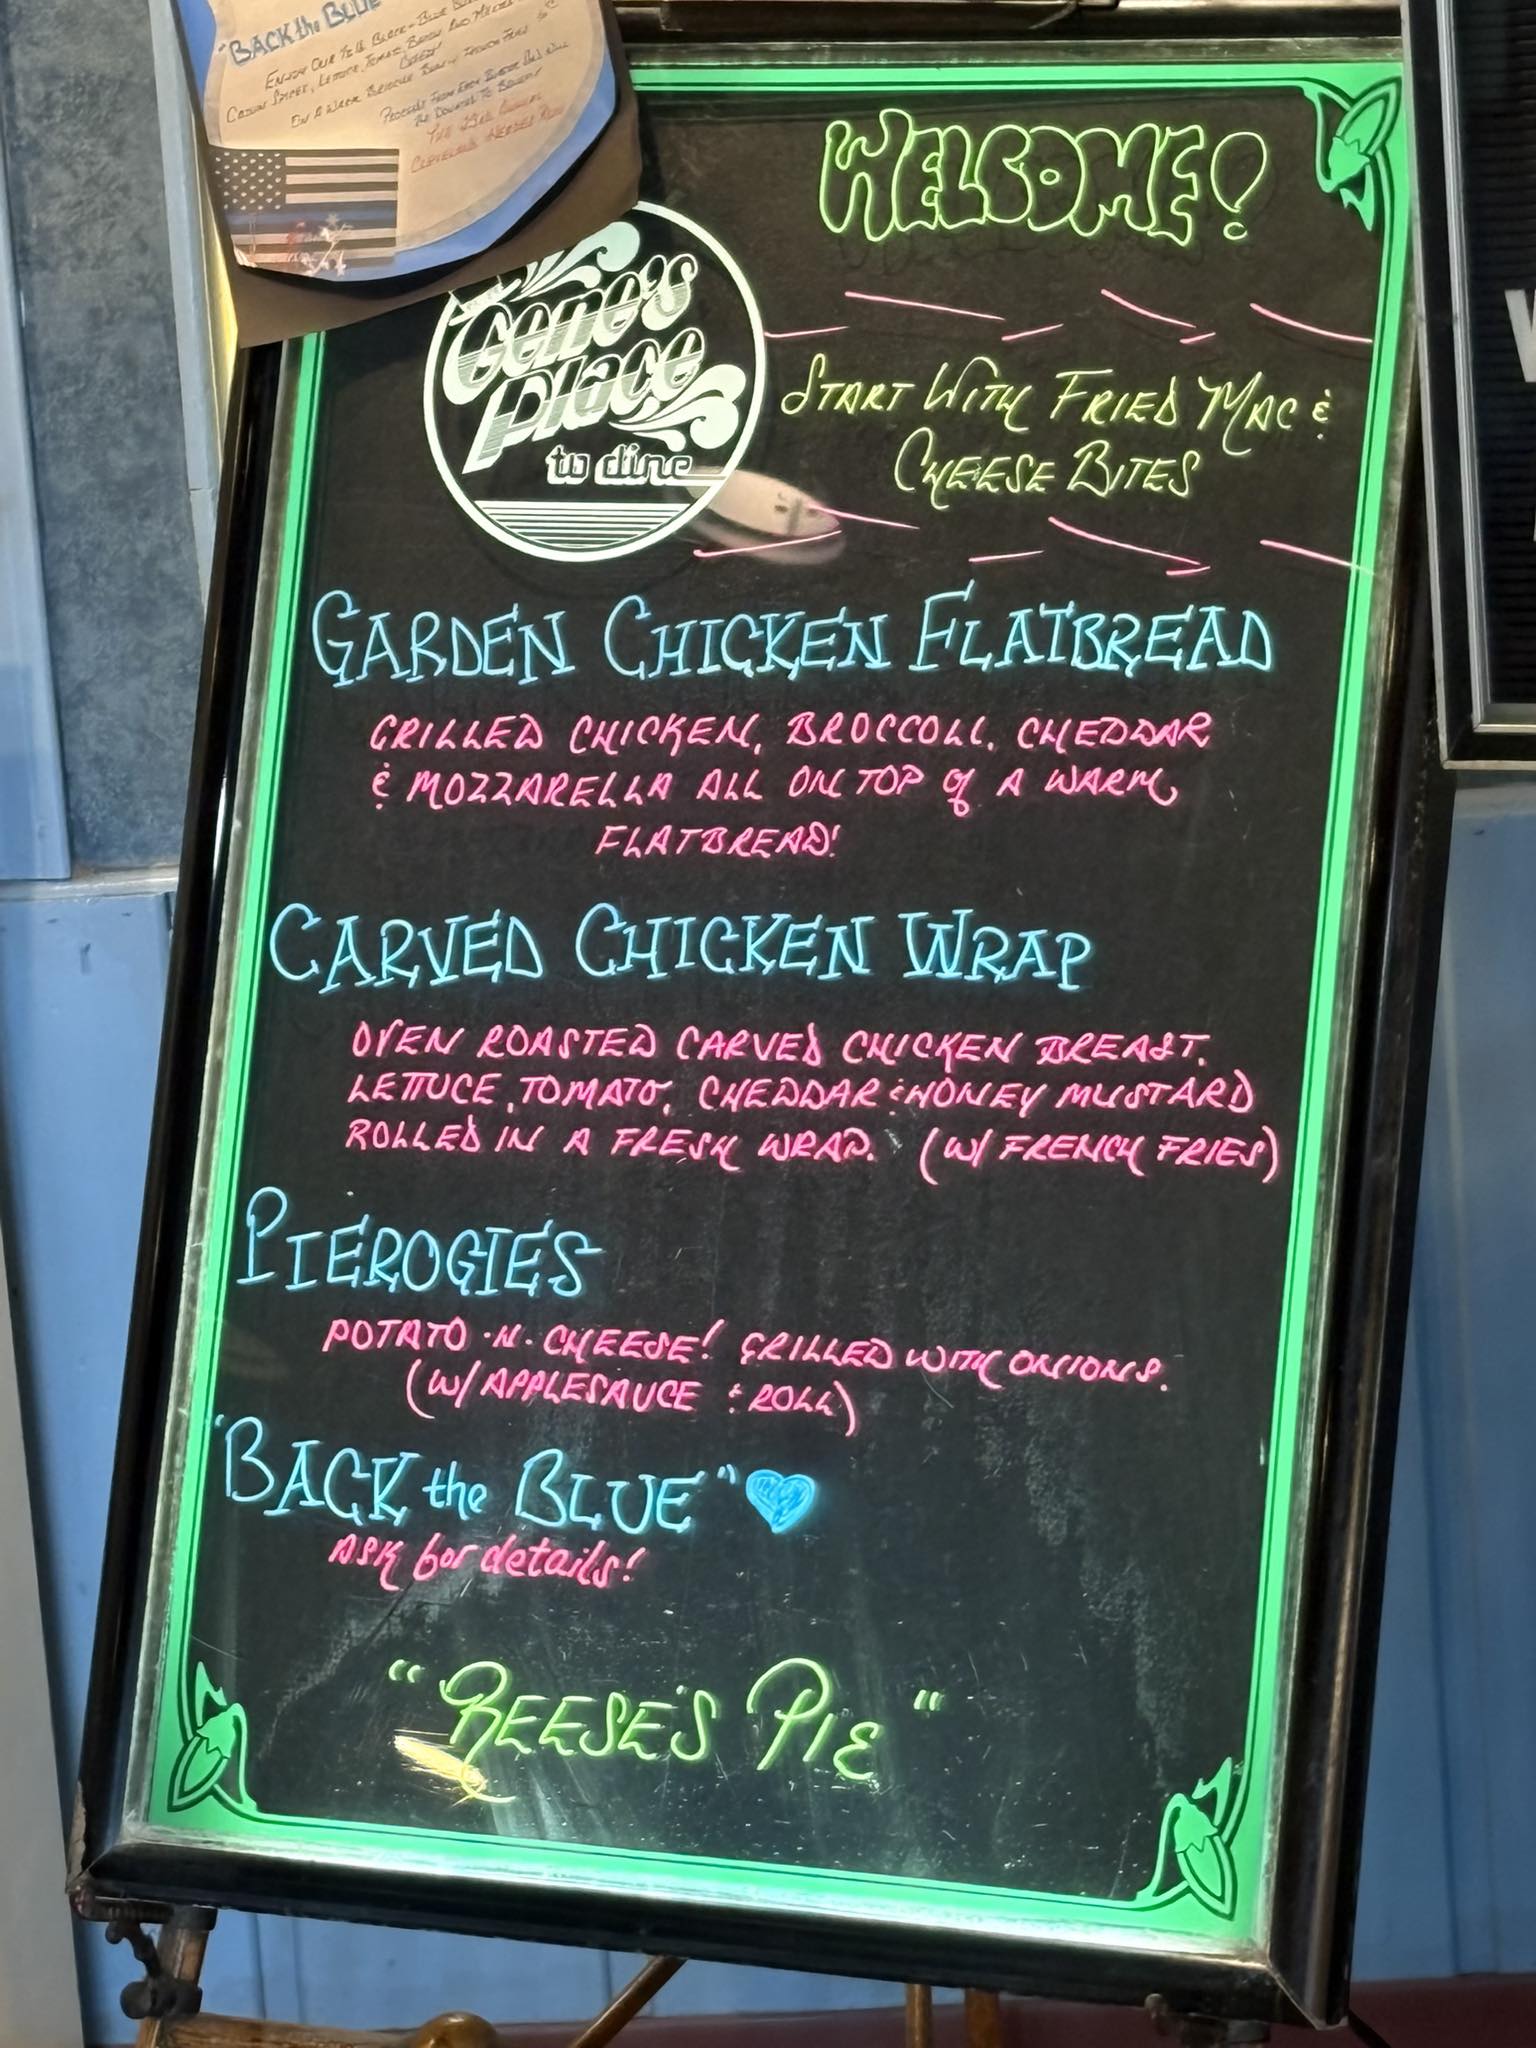 "BACK the BLUE
ENJOY OUR 1/2 LB. BLACK-N-BLUE
CAJUN SPICES, LETTUCE, TOMATO, BACON AND MELTED
CHEESE!
ON A WARM BRIOCHE BUN W/ FRENCH FRIES
PROCEEDS FROM EACH BURGER SOLD WILL
BE DONATED TO BENEFIT
THE ANNUAL
CLEVELAND HEROES RUN
WELCOME!
Gene's
Place
to dine
START WITH FRIED MAC &
CHEESE BITES
GARDEN CHICKEN FLATBREAD
GRILLED CHICKEN, BROCCOLI, CHEDDAR
& MOZZARELLA ALL ON TOP of A WARM
FLATBREAD!
CARVED CHICKEN WRAP
OVEN ROASTED CARVED CHICKEN BREAST,
LETTUCE, TOMATO, CHEDDAR & HONEY MUSTARD
ROLLED IN A FRESH WRAP. (W/ FRENCH FRIES)
PIEROGIES
POTATO -N- CHEESE! GRILLED WITH ONIONS.
(W/ APPLESAUCE & ROLL)
"BACK the BLUE"
ASK for details!
"REESE'S PIE"